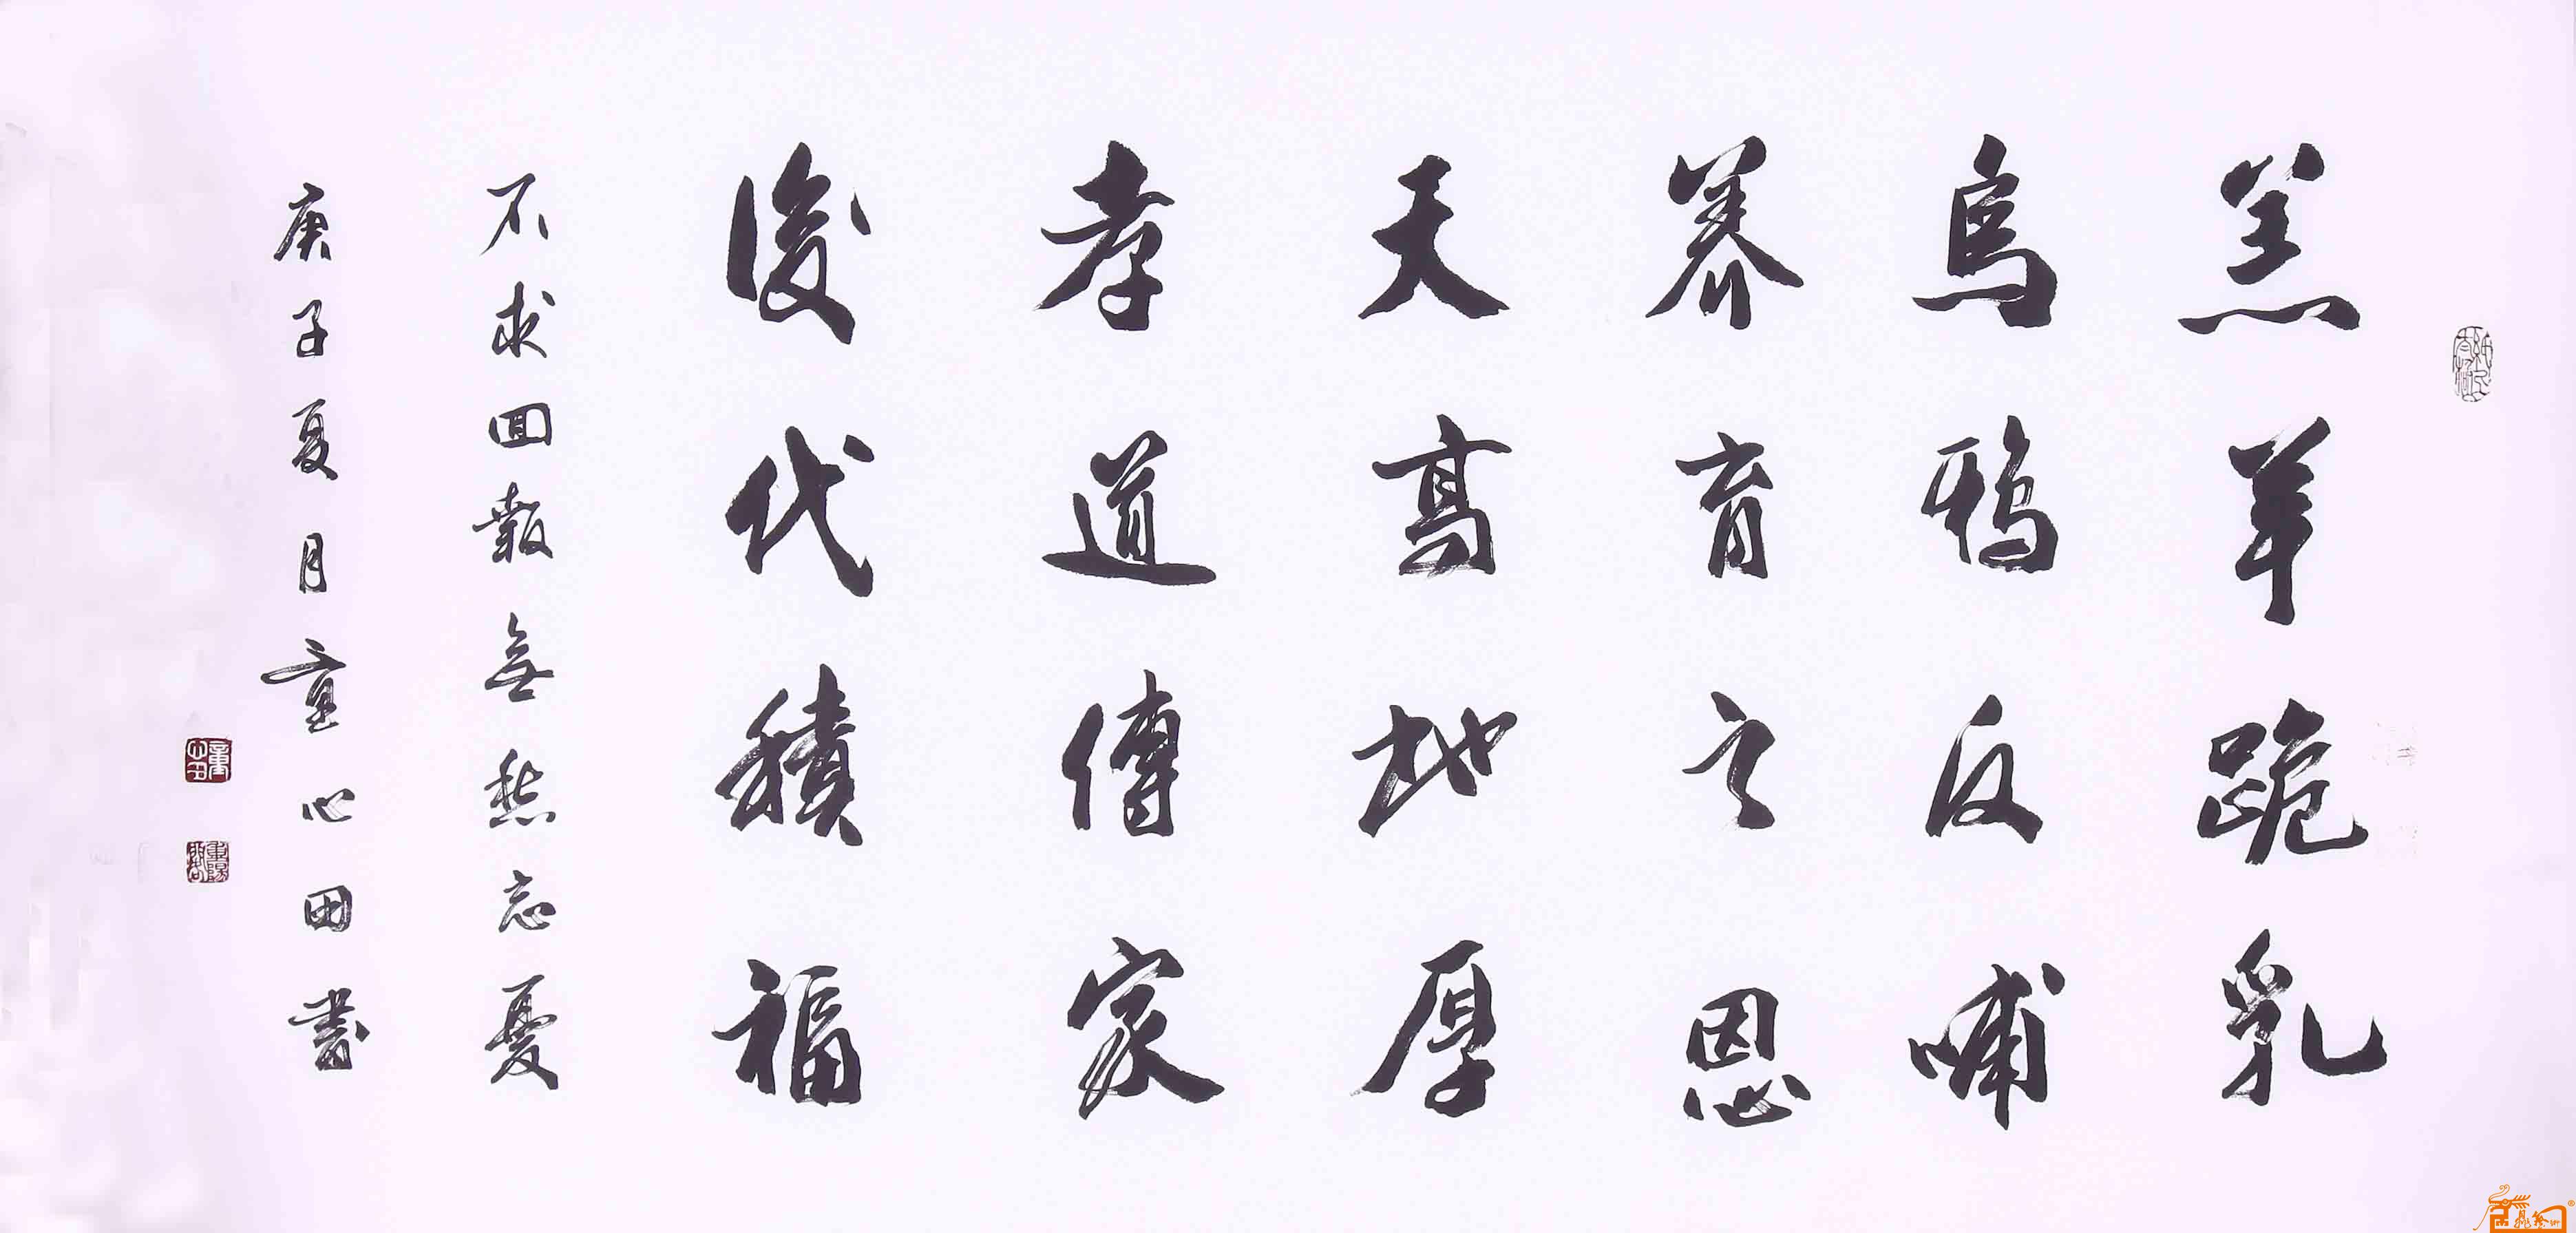 羔羊跪乳
烏鴉反哺
養育之恩
天高地厚
孝道傳家
後代積福
不求回報無愁忘憂
庚子夏月童心田書